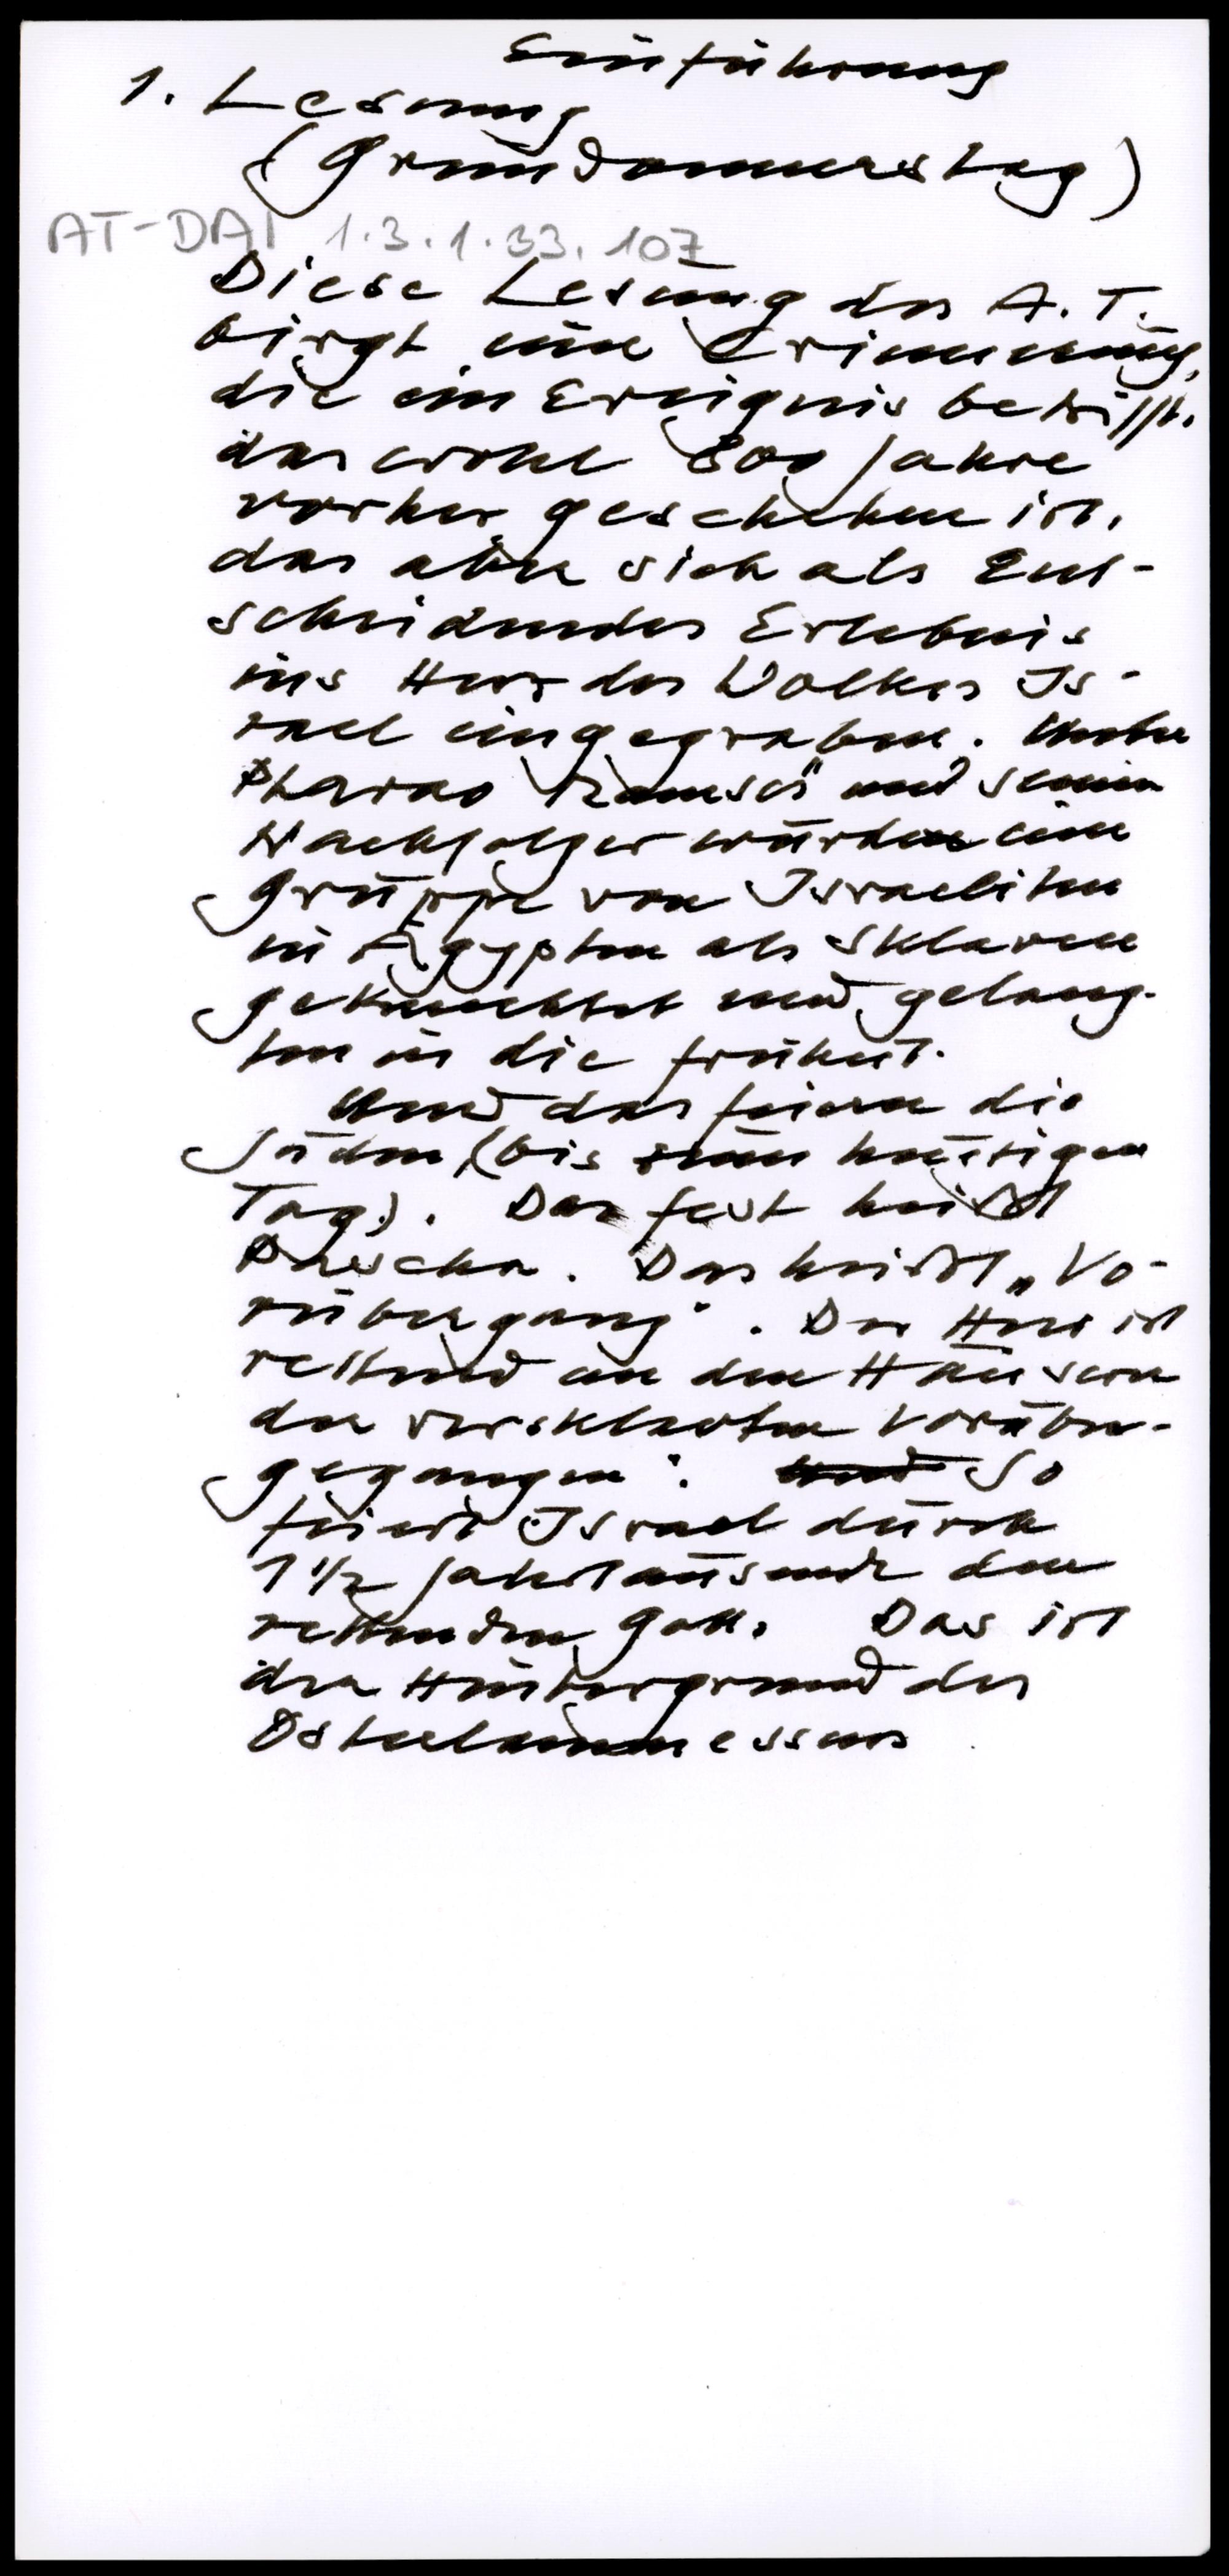 Einführung
1. Lesung
(Gründonnerstag)
AT-DAI 1.3.1.33.107
Diese Lesung des A. T.
birgt eine Erinnerung,
die ein Ereignis betrifft,
das wohl 800 Jahre
vorher geschehen ist,
das aber sich als Ent-
scheidendes Erlebnis
ins Herz des Volkes Is-
rael eingegraben. Unter
Pharao Ramses und seinem
Nachfolger wurden eine
Gruppe von Israeliten
in Ägypten als Sklaven
geknechtet und gelang-
ten in die Freiheit.
Und das feiern die
Juden (bis zum heutigen
Tag). Das Fest heißt
Pascha. Das heißt „Vo-
rübergang". Der Herr ist
rettend an den Häusern
der versklavten vorüber-
gegangen". Und So
feiert Israel durch
1 1/2 Jahrtausende den
rettenden Gott. Das ist
der Hintergrund des
Osterlammessens